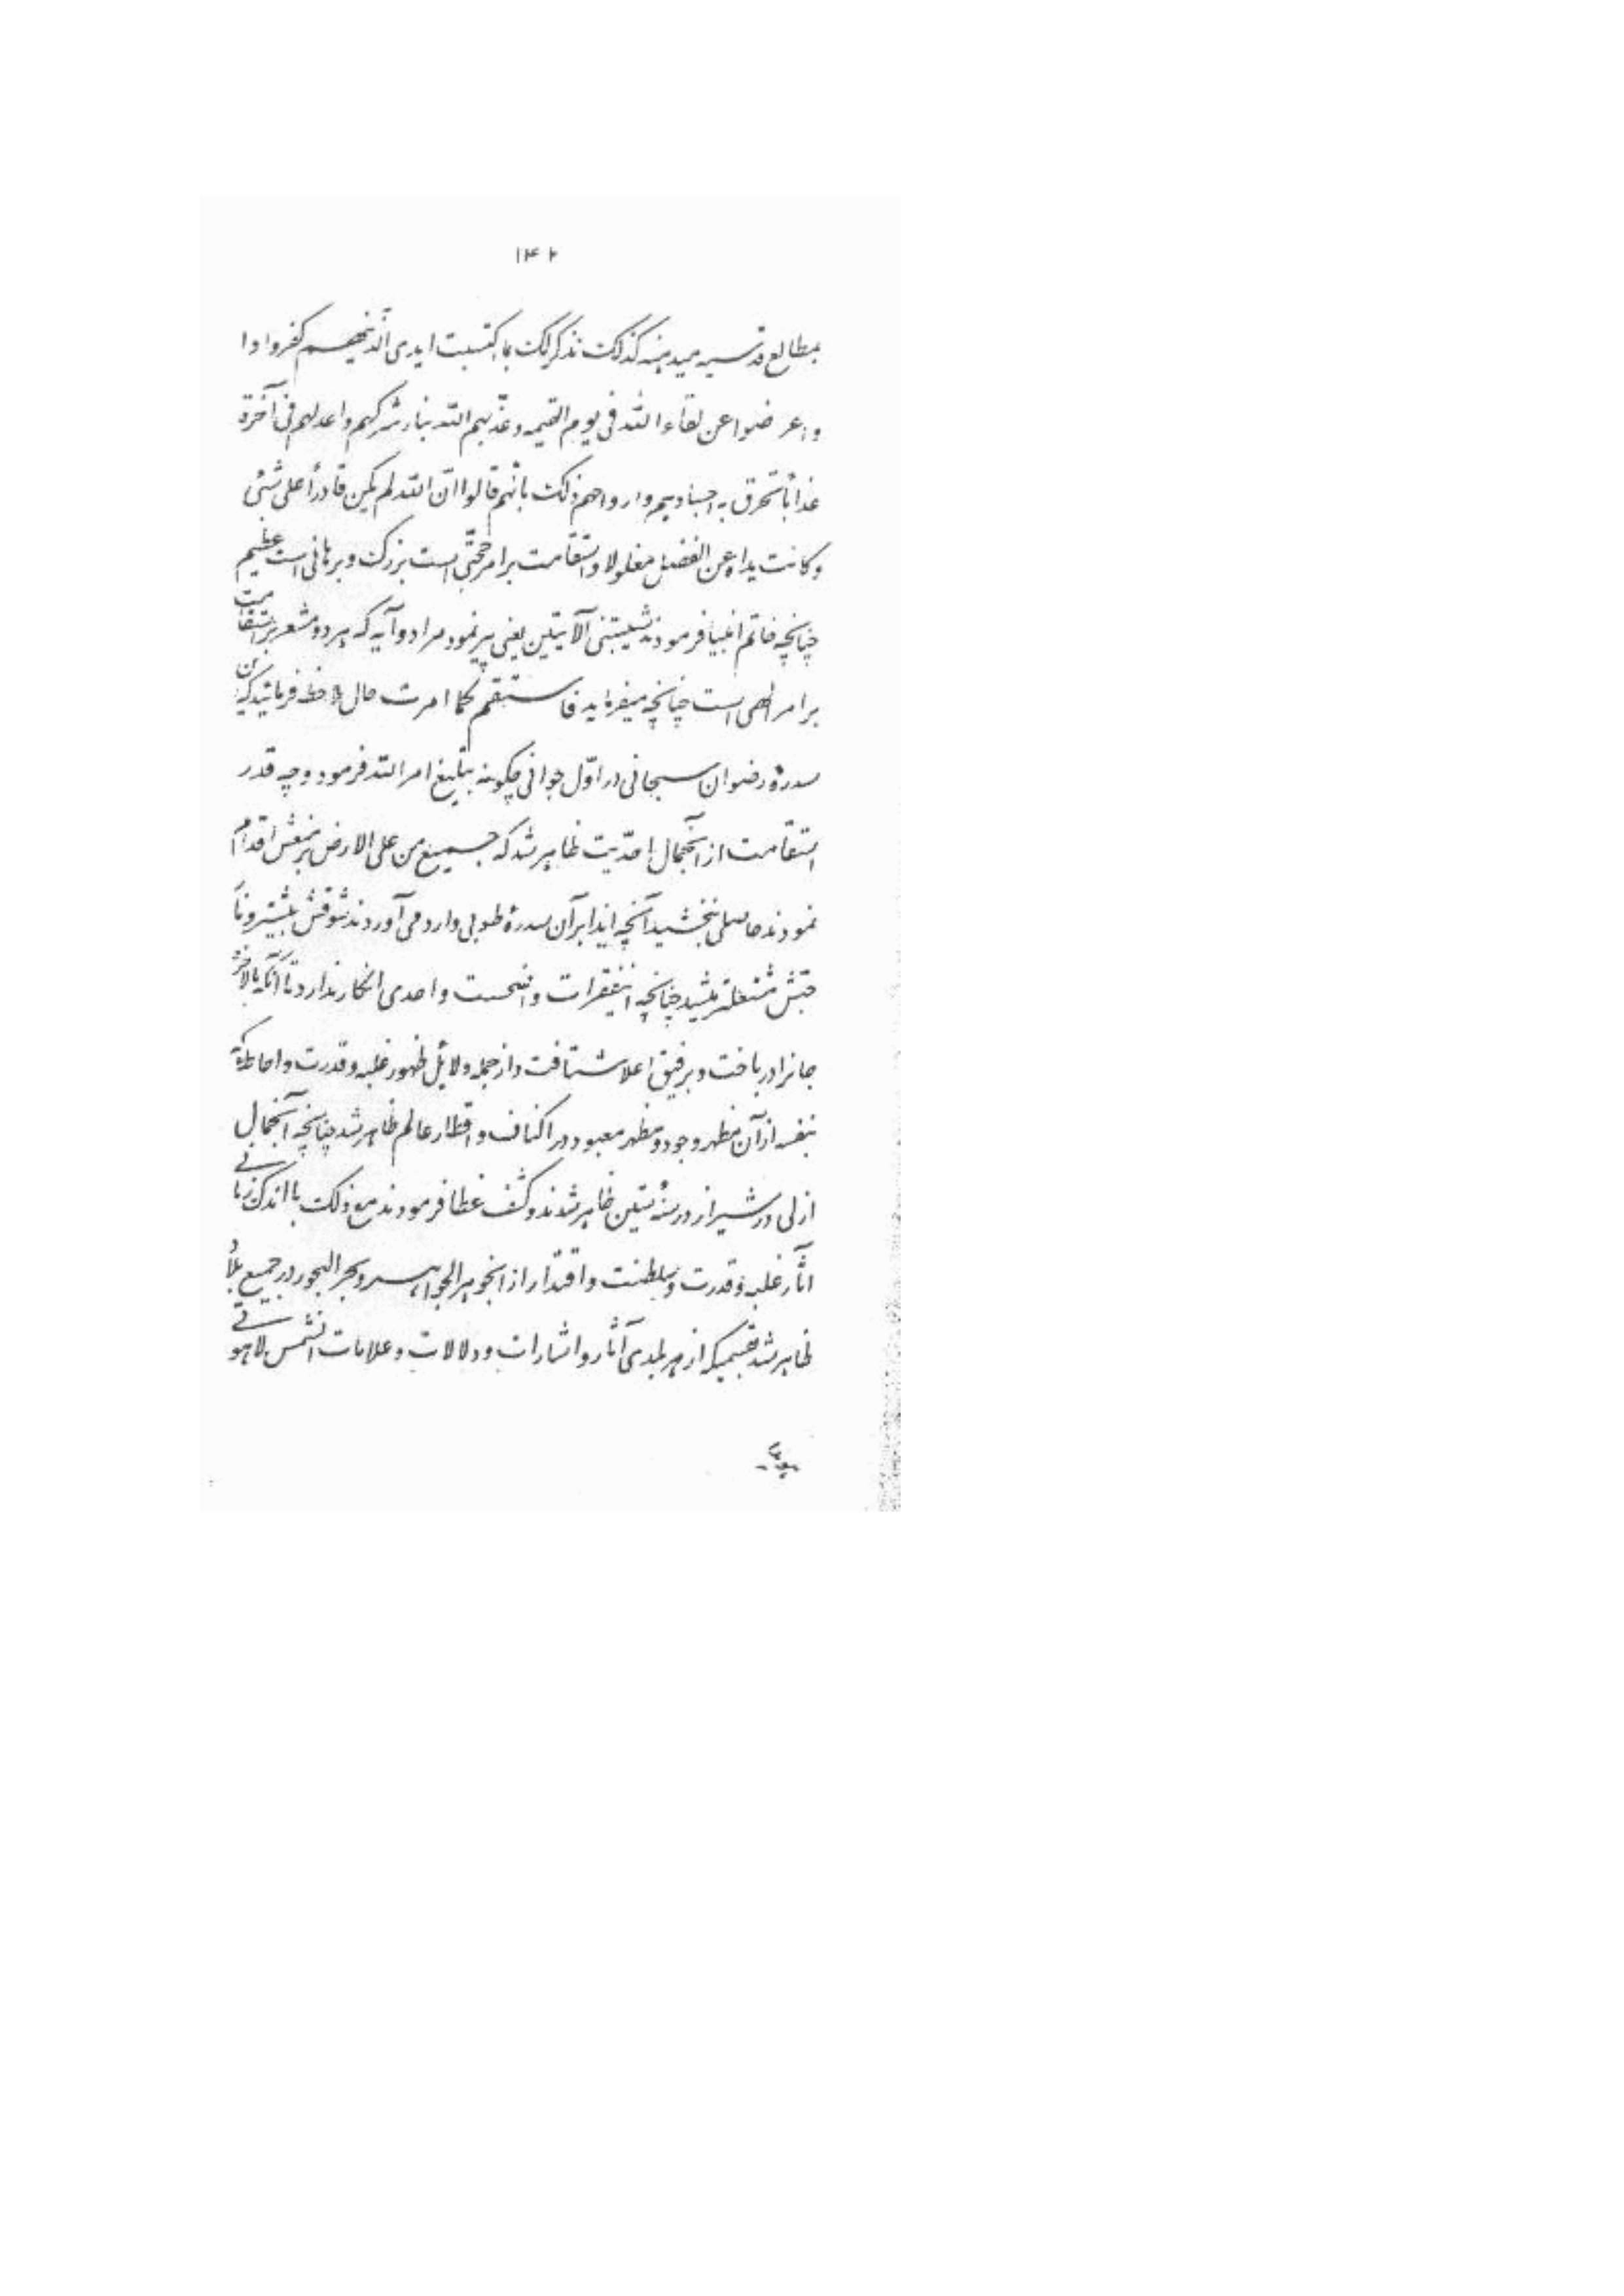 ۱۴۲
بمطالع قدسیه میدهند کذلک نذکر لک بما اکتسبت ایدی الذینهم کفروا وا
واعرضوا عن لقاء الله فی یوم القیمه و عذّبهم الله بنار شرکهم واعد لهم فی آخرة
عذاباً تحرق به اجسادهم وارواحهم ذلک بانّهم قالوا انّ الله لم یکن قادراً علی شئی
وکانت یداه عن الفضل مغلولا واستقامت بر امر حجّتی است بزرگ و برهانی است عظیم
چنانچه خاتم انبیا فرمودند شیّبتنی الآیتین یعنی پیر نمود مرا دو آیه که هر دو مشعر بر استقامت
بر امر الهی است چنانچه میفرماید فاستقم کما امرت حال ملاحظه فرمائید که این
سدرهٔ رضوان سبحانی در اوّل جوانی چگونه تبلیغ امر الله فرمود و چه قدر
استقامت از آنجمال احدّیت ظاهر شد که جمیع من علی الارض بر منعش اقدام
نمودند حاصلی نبخشید آنچه ایذا بر آن سدرهٔ طوبی وارد می آوردند شوقش بیشتر و نار
حبّش مشتعلتر میشد چنانچه اینفقرات واضحست و احدی انکار ندارد تا آنکه بالاخره
جانرا درباخت و برفیق اعلا شتافت و از جمله دلائل ظهور غلبه و قدرت و احاطه که
بنفسه از آن مظهر وجود و مظهر معبود در اکناف و اقطار عالم ظاهر شد چنانچه آنجمال
ازلی در شیراز در سنهٔ ستین ظاهر شدند و کشف غطا فرمودند مع ذلک باندک زمانی
آثار غلبه و قدرت و سلطنت و اقتدار از آنجوهر الجواهر و بحر البحور در جمیع بلاد
ظاهر شد بقسمیکه از هر بلدی آثار و اشارات و دلالات و علامات آنشمس لاهوتی